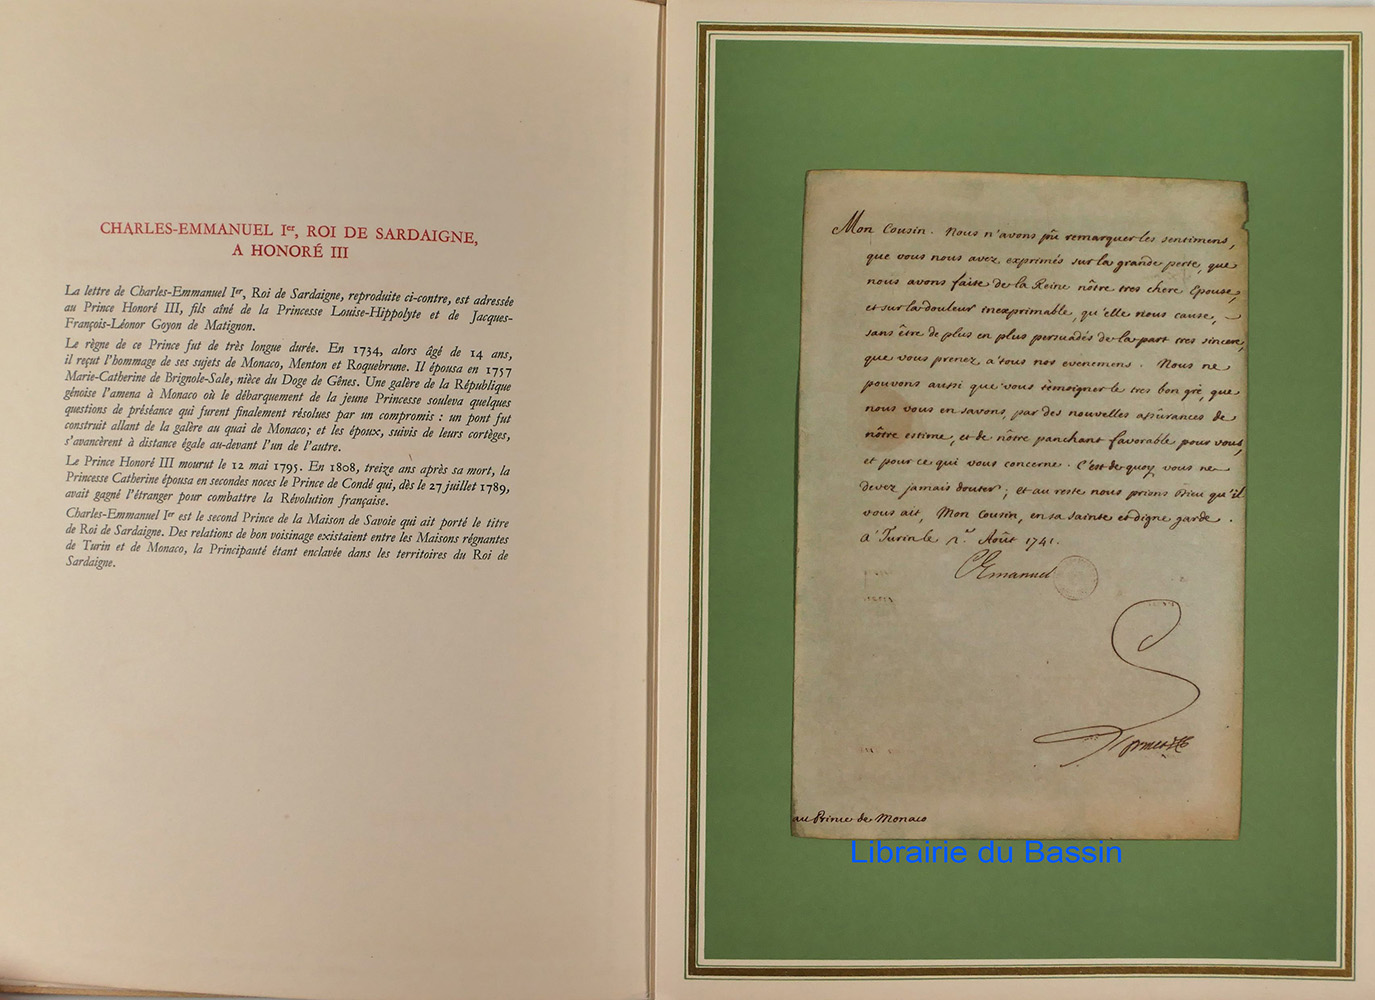 CHARLES-EMMANUEL Iᵉʳ, ROI DE SARDAIGNE,
A HONORÉ III
La lettre de Charles-Emmanuel Iᵉʳ, Roi de Sardaigne, reproduite ci-contre, est adressée
au Prince Honoré III, fils aîné de la Princesse Louise-Hippolyte et de Jacques-
François-Léonor Goyon de Matignon.
Le règne de ce Prince fut de très longue durée. En 1734, alors âgé de 14 ans,
il reçut l'hommage de ses sujets de Monaco, Menton et Roquebrune. Il épousa en 1757
Marie-Catherine de Brignole-Sale, nièce du Doge de Gênes. Une galère de la République
génoise l'amena à Monaco où le débarquement de la jeune Princesse souleva quelques
questions de préséance qui furent finalement résolues par un compromis : un pont fut
construit allant de la galère au quai de Monaco; et les époux, suivis de leurs cortèges,
s'avancèrent à distance égale au-devant l'un de l'autre.
Le Prince Honoré III mourut le 12 mai 1795. En 1808, treize ans après sa mort, la
Princesse Catherine épousa en secondes noces le Prince de Condé qui, dès le 27 juillet 1789,
avait gagné l'étranger pour combattre la Révolution française.
Charles-Emmanuel Iᵉʳ est le second Prince de la Maison de Savoie qui ait porté le titre
de Roi de Sardaigne. Des relations de bon voisinage existaient entre les Maisons régnantes
de Turin et de Monaco, la Principauté étant enclavée dans les territoires du Roi de
Sardaigne.
Mon Cousin. Nous n'avons pû remarquer les sentimens,
que vous nous avez exprimés sur la grande perte, que
nous avons faite de la Reine nôtre tres chere Epouse,
et sur la douleur inexprimable, qu'elle nous cause,
sans être de plus en plus persuadés de la part tres sincere,
que vous prenez à tous nos evenemens. Nous ne
pouvons aussi que vous témoigner le tres bon gré, que
nous vous en savons, par des nouvelles assûrances de
nôtre estime, et de nôtre panchant favorable pour vous,
et pour ce qui vous concerne. C'est de quoy vous ne
devez jamais douter; et au reste nous prions Dieu qu'il
vous ait, Mon Cousin, en sa sainte et digne garde.
à Turin le Août 1741.
CEmanuel
au Prince de Monaco
Librairie du Bassin